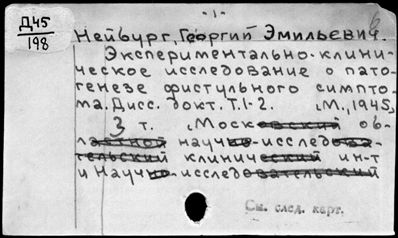 - 1 -
6
Д45
198
Нейбург, Георгий Эмильевич.
Экспериментально-клини-
ческое исследование о пато-
генезе фистульного симпто-
ма. Дисс. докт. Т.1-2. М., 1945,
3 т. (Московский об-
ластной научно-исследова-
тельский клинический ин-т
и Научно-исследовательский
См. след. карт.